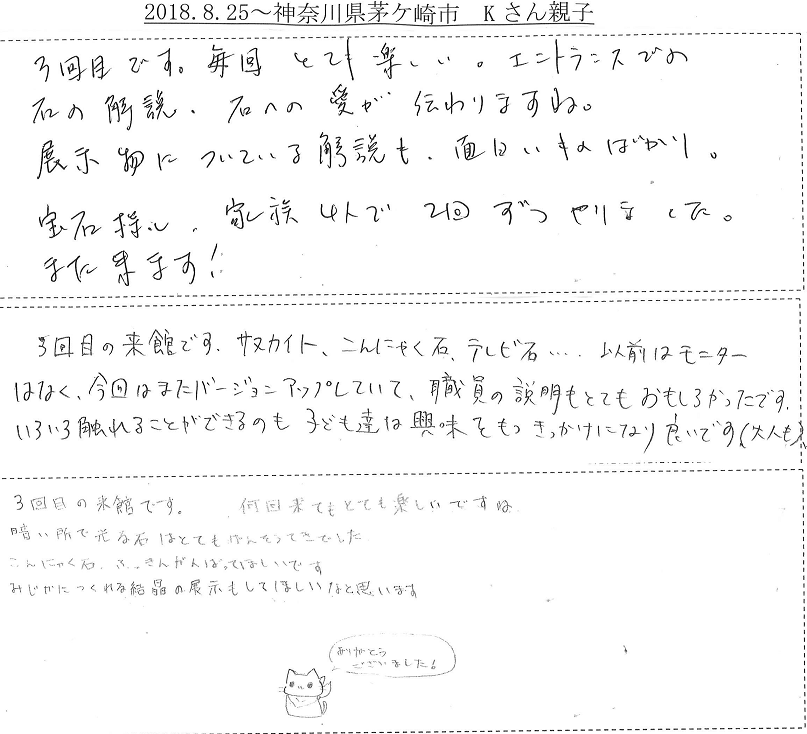 2018.8.25～神奈川県茅ケ崎市　Kさん親子
3回目です。毎回 とても 楽しい。エントランスでの
石の 解説、石への 愛が 伝わりますね。
展示物に ついている 解説も、面白いものばかり。
宝石探し、家族4人で 2回 ずつ やりました。
また来ます!
3回目の来館です。サヌカイト、こんにゃく石、テレビ石… 以前はモニター
はなく、今回はまたバージョンアップしていて、職員の説明もとてもおもしろかったです。
いろいろ触れることができるのも 子ども達は興味をもつきっかけになり良いです(大人も)
3回目の来館です。　何回来てもとても楽しいですね
暗い所で光る石はとてもげんそうてきでした
こんにゃく石、がんばってほしいです
みじかにつくれる結晶の展示もしてほしいなと思います
ありがとう
ございました!